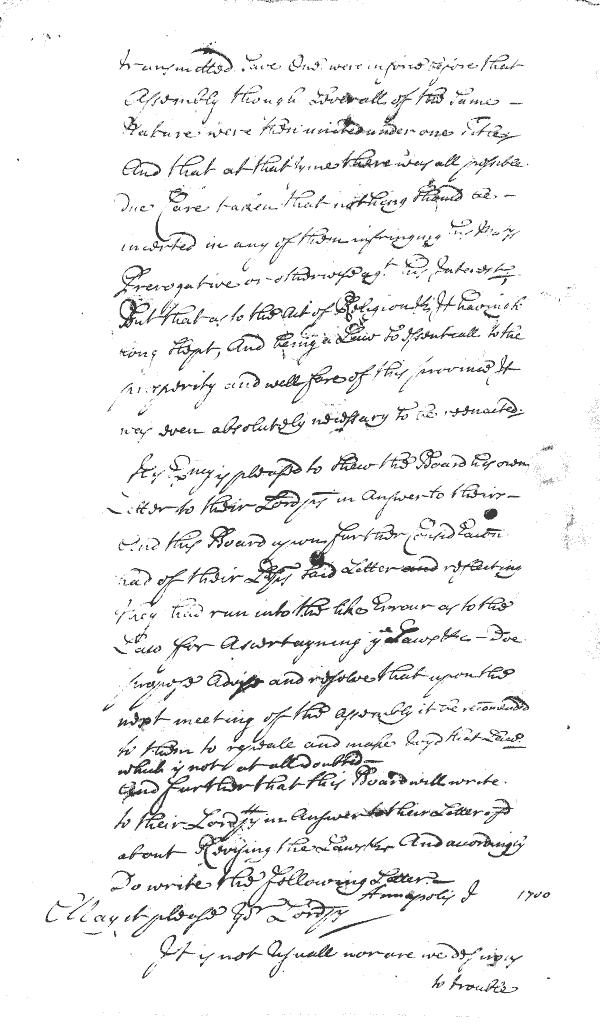 transmitted, save one were in force before that
Assembly though severall of the same -
Nature were then united under one Title
And that at that tyme there was all possible
due Care taken that nothing should be -
incerted in any of them infringing his Matys
Prerogative or otherwise agt his Interest,
But that as to the Act of Religion &c It having
long slept, And being a Law so essentiall to the
prosperity and wellfare of this province, It
was even absolutely necessary to be reenacted.
His Exncy is pleased to shew the Board his own
Letter to their Lordspps in Answer to theirs -
And this Board upon further Consideracon
had of their Lspps said Letter and reflecting
they had run into the like Errour as to the
Law for Ascertayning ye Laws &c - Doe
propose Advise and resolve that upon the
next meeting of the Assembly it be recomended
to them to repeale and make Voyd that Law
which is not at all doubted -
And further that this Board will write
to their Lordspps in Answer to their Letter
about Revising the Laws &c And accordingly
Do write the following Letter -
Annapolis 1700
May it please Yor Lordspps
It is not usuall nor are we desirous
to trouble